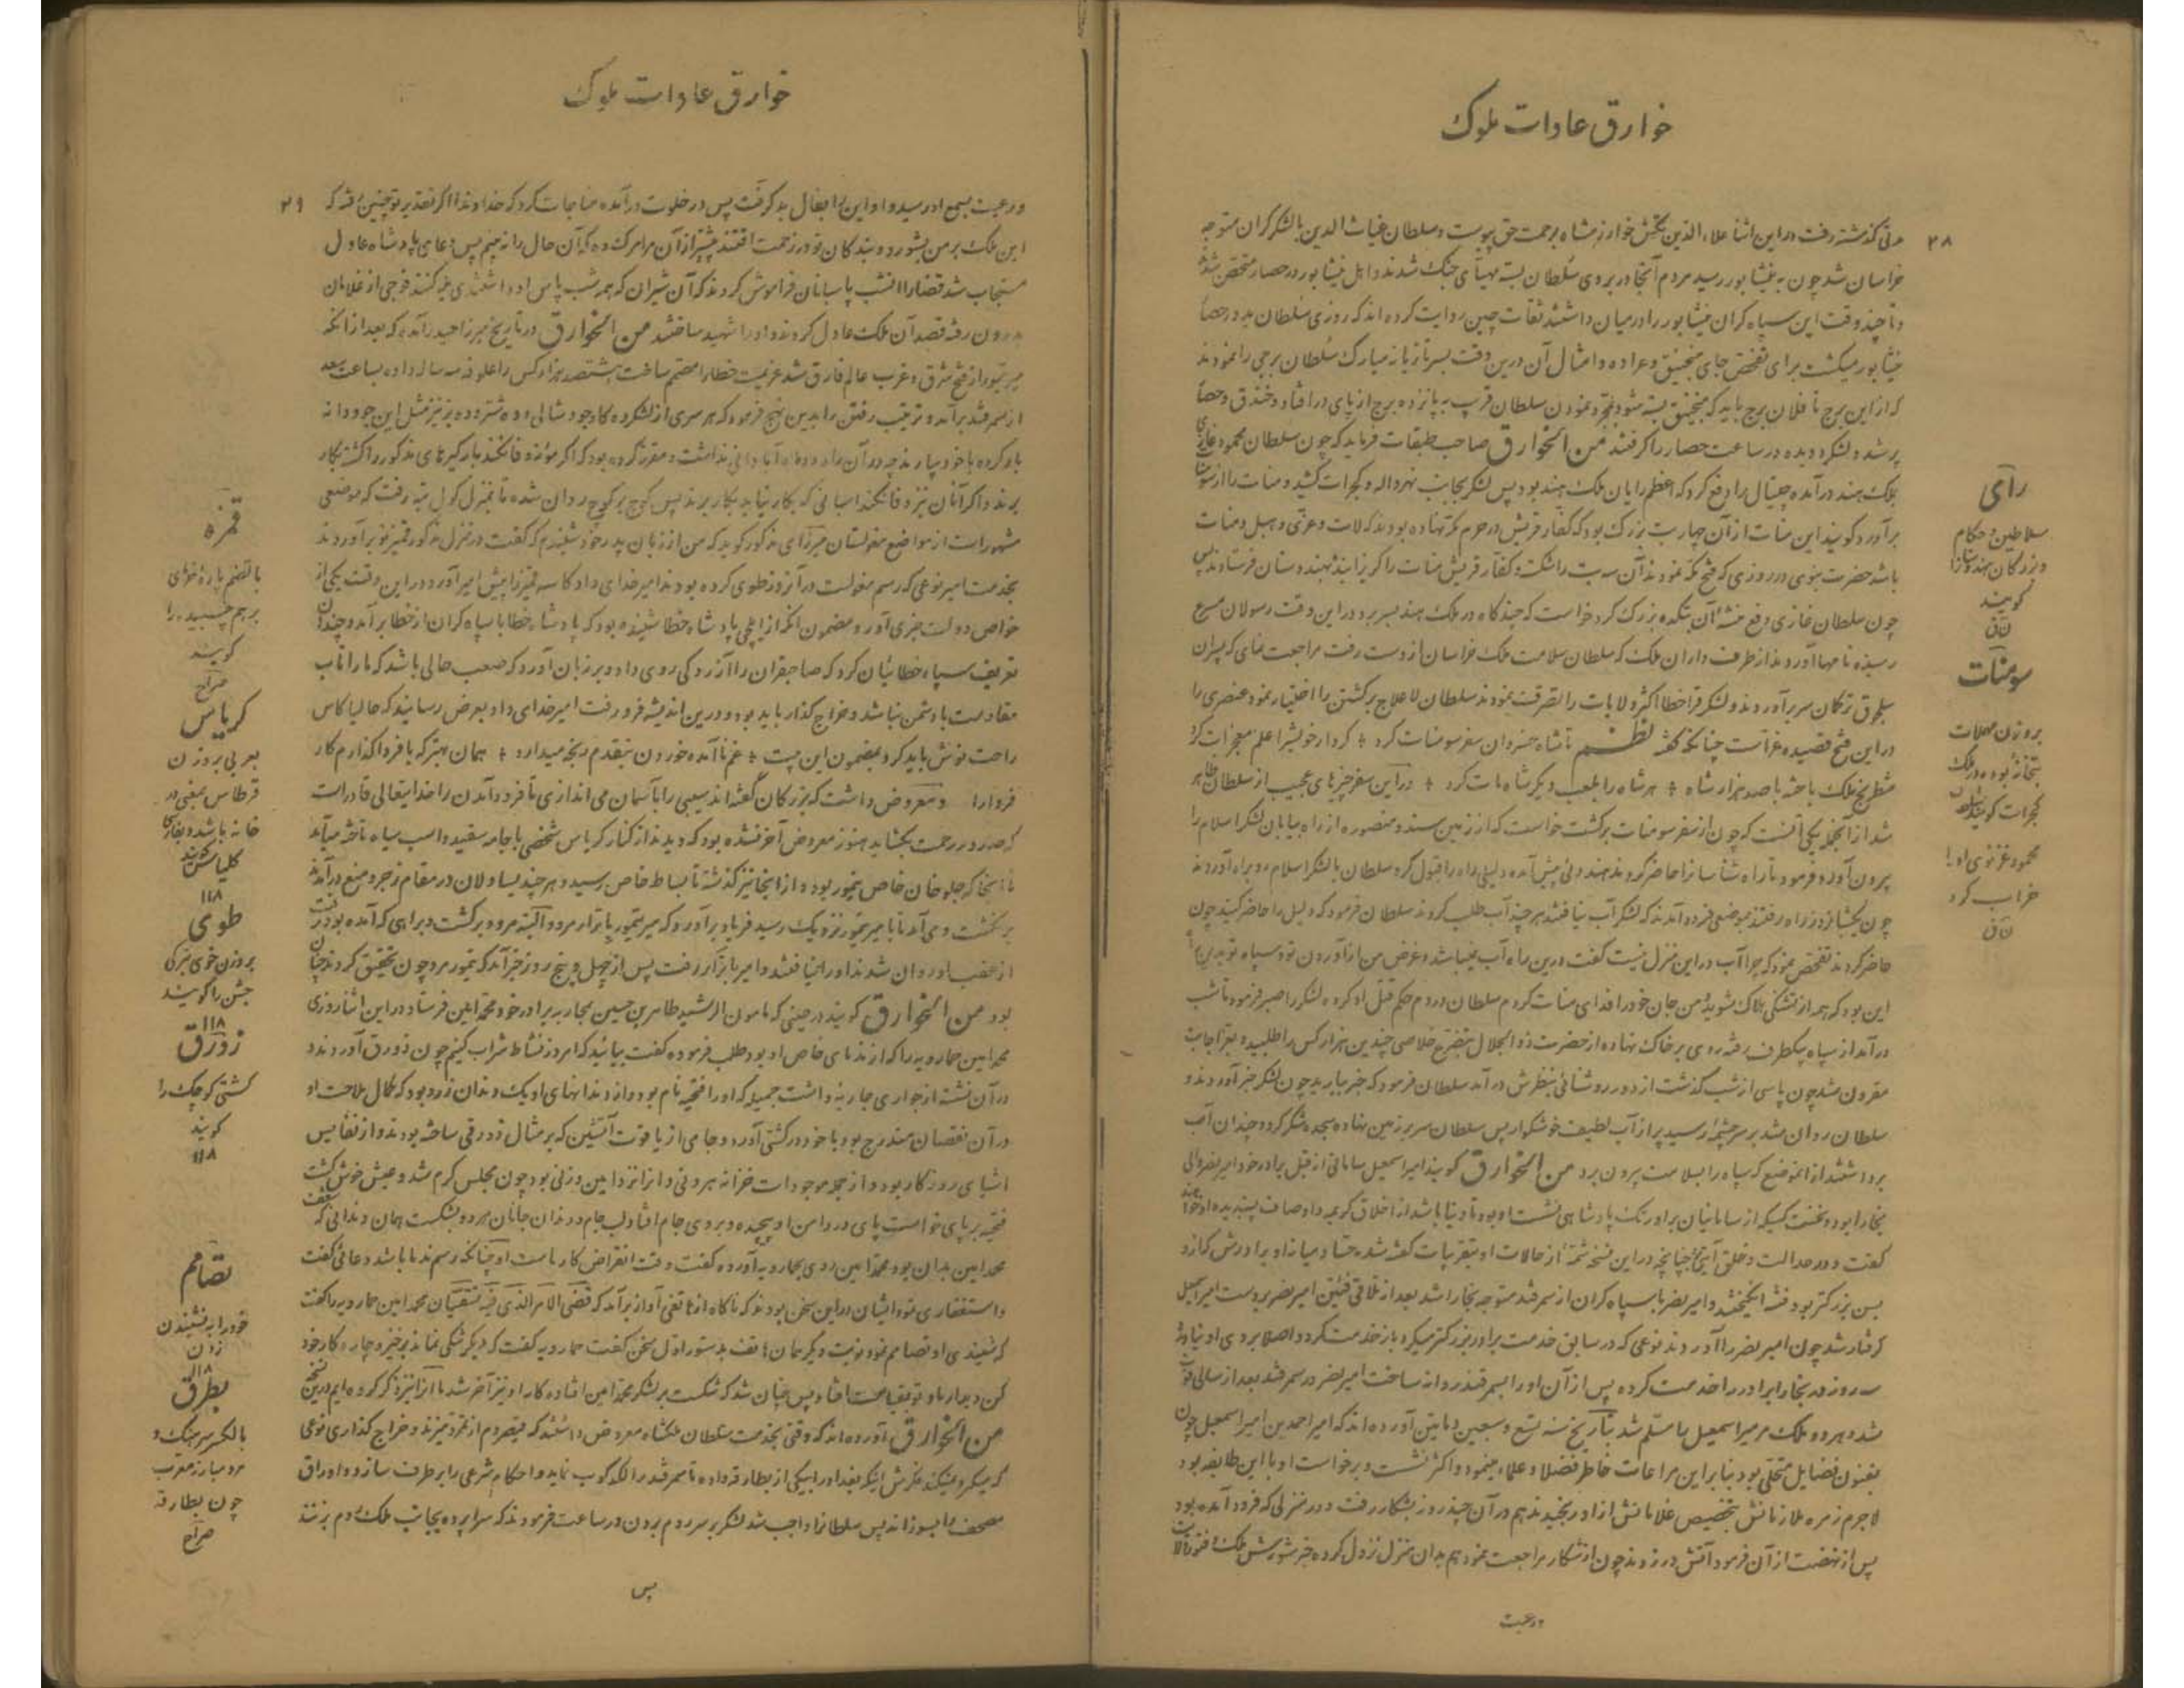 خوارق عادات ملوک
۲۸
مدتی گذشته رفت در این اثنا علاء الدین تکش خوارزمشاه برحمت حق پیوست و سلطان غیاث الدین با لشکر گران متوجه
خراسان شد چون به نیشابور رسید مردم آنجا در بروی سلطان بسته مهیای جنک شدند و اهل نیشابور در حصار متحصن شد
و تا چند وقت این سپاه گران نیشابور را در میان داشتند ثقات چنین روایت کرده اند که روزی سلطان بدور حصار
نیشابور میکشت برای تفحص جای منجنیق و عراده و امثال آن درین وقت بسر تازیانه مبارک سلطان برجی را نمودند
که از این برج تا فلان برج باید که منجنیق بسته شود بمجرد نمودن سلطان قریب به پانزده برج از پای در افتاد و خندق و حصار
پر شد و لشکر دویده در ساعت حصار را گرفتند من الخوارق صاحب طبقات فرماید که چون سلطان محمود غازی
بملک هند در آمده چیپال را دفع کرد که اعظم رایان ملک هند بود پس لشکر بجانب نهرواله و کجرات کشید و منات را از سومنات
برآورد و کویند این منات از آن چهار بت بزرک بود که کفار قریش در حرم مکه نهاده بودند که لات و عزی و هبل و منات
باشد حضرت نبوی در روزی که فتح مکه نمودند آن سه بت را شکست و کفار قریش منات را کریزانیده بهندوستان فرستادند پس
چون سلطان غازی دفع فتنه آن بتکده بزرک کرد خواست که چند کاه در ملک هند بسر برد در این وقت رسولان مسرع
رسیده نامها آوردند از طرف داران ملک که سلطان سلامت ملک خراسان از دست رفت مراجعت نمای که پسران
سلجوق ترکمان سر برآوردند و لشکر قراخطا اکثر ولایات را تصرف نمودند سلطان لاعلاج برکشتن را اختیار نمود و عنصری را
در این فتح قصیده غراست چنانکه گفته نظم تا شاه خسروان سفر سومنات کرد + کردار خویش را علم معجزات کرد
شطرنج ملک باخته با صد هزار شاه + هر شاه را بلعب دیکر شاه مات کرد + در این سفر چیزهای عجیب از سلطان ظاهر
شد از آنجمله یکی آنست که چون از سفر سومنات برکشت خواست که از زمین سند و منصوره از راه بیابان لشکر اسلام را
بیرون آورد فرمود تا راه شناسانرا حاضر کردند هندوئی پیش آمده دلیلی راه را قبول کرد سلطان با لشکر اسلام رو براه آوردند
چون یکشبانروز راه رفتند بموضعی فرود آمدند که لشکر آب نیافتند هر چند آب طلب کردند سلطان فرمود که دلیل را حاضر کنند چون
حاضر کردند تفحص نمود که چرا آب در این منزل نیست گفت درین راه آب نمیباشد و غرض من از آوردن تو و سپاه تو بدین راه
این بود که همه از تشنگی هلاک شوید و من جان خود را فدای منات کردم سلطان در دم حکم قتل او کرده لشکر را صبر فرمود تا شب
در آمد از سپاه یکطرف رفته روی بر خاک نهاده از حضرت ذوالجلال بتضرع خلاصی چندین هزار کس را طلبید و بعز اجابت
مقرون شد چون پاسی از شب گذشت از دور روشنائی بنظرش در آمد سلطان فرمود که خبر بیارید چون لشکر خبر آوردند و
سلطان روان شد بر سر چشمه رسید پر از آب لطیف خوشکوار پس سلطان سر بر زمین نهاده سجده شکر کرد و چندان آب
برداشتند از انموضع که سپاه را بسلامت بیرون برد من الخوارق کویند امیر اسمعیل سامانی از قبل برادر خود امیر نصر والی
بخارا بود و نخست کسیکه از سامانیان بر اورنک پادشاهی نشست او بود و تا دنیا باشد از اخلاق کریمه و اوصاف پسندیده او خواهند
گفت و در عدالت و خلق آیتی چنانچه در این نسخه شمه از حالات او بتقریبات گفته شده حساد میان او برادرش که ازو
بسن بزرکتر بود فتنه انگیختند و امیر نصر با سپاه گران از سمرقند متوجه بخارا شد بعد از تلاقی فئتین امیر نصر بر دست امیر اسمعیل
گرفتار شد چون امیر نصر را آوردند نوعی که در سابق خدمت برادر بزرکتر میکرد باز خدمت کرد و اصلا بروی او نیاورد
سه روز در بخارا برادر را خدمت کرده پس از آن او را بسمرقند روانه ساخت امیر نصر در سمرقند بعد از سالی فوت
شد و هر دو ملک مر میر اسمعیل را مسلم شد بتاریخ سنه تسع و سبعین و مایتین آورده اند که امیر احمد بن امیر اسمعیل چون
بفنون فضایل متحلی بود بنا بر این مراعات خاطر فضلا و علما مینمود و اکثر نشست و برخواست او با این طایفه بود
لاجرم زمره ملازمانش بتخصیص غلامانش از او رنجیدند هم در آن چند روز بشکار رفت و در منزلی که فرود آمده بود
پس از نهضت از آن فرمود آتش در زدند چون از شکار مراجعت نمود هم بدان منزل نزول کرده خبر شورش ملک و فتور ولایت
و رعیت
رای
سلاطین و حکام
و بزرکان هندوستانرا
کویند
ق ن
سومنات
بروزن مهملات
بتخانه بوده در ملک
کجرات کویند سلطان
محمود غزنوی او را
خراب کرد
ق ن
خوارق عادات ملوک
۲۹
و رعیت بسمع او رسید و او این را بفال بد گرفت پس در خلوت در آمده مناجات کرد که خداوندا اگر تقدیر تو چنین رفته که
این ملک بر من بشورد و بندگان تو در زحمت افتند پیشتر از آن مرا مرک ده که آن حال را نه بینم پس دعای پادشاه عادل
مستجاب شد قضا را انشب پاسبانان فراموش کردند که آن شیران که همه شب پاس او داشتندی بند کنند فوجی از غلامان
درون رفته قصد آن ملک عادل کردند و او را شهید ساختند من الخوارق در تاریخ میرزا حیدر آمده که بعد از انکه
میر تیمور از فتح شرق و غرب عالم فارق شد عزیمت خطا را مصمم ساخت هشتصد هزار کس را علوفه سه ساله داده بساعت سعد
از سمرقند برآمد و ترتیب رفتن را بدین نهج فرمود که هر سری از لشکر ده کاو جود شالی و ده شتر و ده بز نیز مثل این جو و دانه
بار کرده با خود بیارند چه در آن راه دو ماهه آبادانی نداشت و مقرر کرده بود که اگر مؤنه وفا نکند بارگیرهای مذکور را کشته بکار
برند و اگر آنان نیز وفا نکند اسبانی که بکار نیاید بکار برند پس کوچ بر کوچ روان شده تا بمنزل کول تپه رفت که موضعی
مشهور است از مواضع مغولستان میرزای مذکور کوید که من از زبان پدر خود شنیدم که گفت در منزل مذکور قمیز نو برآوردند
بخدمت امیر نوعی که رسم مغولست در آنروز طوی کرده بودند امیر خدای داد کاسه قمیز را پیش امیر آورد در این وقت یکی از
خواص دولت خبری آورد مضمون انکه از ایلچی پادشاه خطا شنیده بود که پادشاه خطا با سپاه گران از خطا برآمد و چندان
تعریف سپاه خطائیان کرد که صاحبقران را آزردکی روی داد و بر زبان آورد که صعب حالی باشد که ما را تاب
مقاومت با دشمن نباشد و خراج گذار باید بود و درین اندیشه فرو رفت امیر خدای داد بعرض رسانید که حالیا کاس
راحت نوش باید کرد بمضمون این بیت + غم نا آمده خوردن بنقدم رنجه میدارد + همان بهتر که با فردا گذارم کار
فردا را و معروض داشت که بزرکان گفته اند سیبی را بآسمان می اندازی تا فرود آمدن را خدایتعالی قادر است
که صد در رحمت بکشاید هنوز معروض آخر نشده بود که دیدند از کنار کریاس شخصی با جامه سفید و اسب سیاه تاخته میآید
تا آنجا که جلوخان خاص تیمور بود و از اینجا نیز گذشته تا بساط خاص رسید و هر چند یساولان در مقام زجر و منع در آمدند
بر نکشت و می آمد تا با میر تیمور نزدیک رسید فریاد برآورد که میر تیمور باترار مرد و البته مرد و برکشت و براهی که آمده بود رفت
از عقب او روان شدند او را نیافتند و امیر باترار رفت پس از چهل و پنج روز خبر آمد که تیمور مرد چون تحقیق کردند چنان
بود من الخوارق کویند در حینی که مامون الرشید طاهر بن حسین بمحاربه برادر خود محمد امین فرستاد در این اثنا روزی
محمد امین حمارویه را که از ندمای خاص او بود طلب فرموده گفت بیائید که امروز نشاط شراب کنیم چون زورق آوردند و
در آن نشته از جواری جاریه داشت جمیله که او را فتحیه نام بود و از دندانهای او یک دندان زرد بود که کمال ملاحت او
در آن نقصان مندرج بود با خود در کشتی آورد و جامی از یاقوت آتشین که بر مثال زورقی ساخته بودند و از نفایس
اشیای روزکار بود و از جمله موجودات خزانه بیرونی و از انرا امین وزنی بود چون مجلس گرم شد و عیش خوش گشت
فتحیه بر پای خواست پای در دامن او پیچیده و بر روی جام افتاد لب جام و دندان جانان هر دو بشکست همان دندانی که شعف
محمد امین بدان بود محمد امین روی بحمارویه آورده گفت وقت انقراض کار ماست او چنانکه رسم ندما باشد دعائی گفت
و استغفاری نمود ایشان در این سخن بودند که ناکاه از هاتفی آواز برآمد که قضی الامر الذی فیه تستفتیان محمد امین حمارویه را گفت
که شنیدی او تصامم نمود نوبت دیگر همان هاتف بدستور اول سخن گفت حمارویه گفت که دیگر شکی نماند برخیز و چاره کار خود
کن دیدار ما و تو بقیامت افتاد پس چنان شد که شکست بر لشکر محمد امین افتاد و کار او نیز آخر شد ما آنرا نیز ذکر کرده ایم درین نسخه
من الخوارق آورده اند که وقتی بخدمت سلطان ملکشاه معروض داشتند که قیصر روم از تمرد نیزند و خراج گذاری نوعی
که میکرد نمیکند غرضش اینکه بغداد را بیکی از بطارقه داده تا سمرقند را لکدکوب نماید و احکام شرعی را بر طرف سازد و اوراق
مصحف را بسوزاند پس سلطانرا واجب شد لشکر بر سر روم بردن در ساعت فرمودند که سراپرده بجانب ملک روم بزنند
پس
قمزه
بالضم پاره خرمای
بر هم چسبیده را
کویند
صراح
کریاس
بعربی بروزن
قرطاس بمعنی در
خانه باشد و بفارسی
کلیاس کویند
۱۱۸
طوی
بروزن خوی بترکی
جشن را کویند
۱۱۸
زورق
کشتی کوچک را
کویند
۱۱۸
تصامم
خود را به نشنیدن
زدن
۱۱۸
بطرق
بالکسر سرهنک و
مرد مبارز معرب
چون بطارقه
صراح